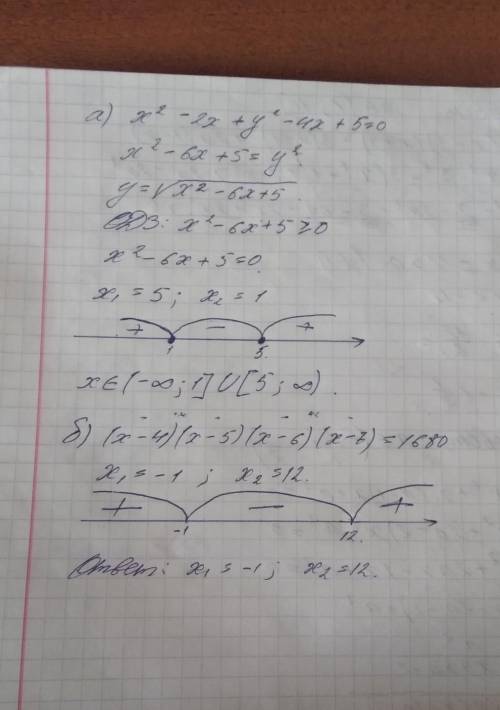 а) x² - 2x + y² - 4x + 5 = 0
x² - 6x + 5 = y².
y = √x² - 6x + 5.
ОДЗ: x² - 6x + 5 ≥ 0
x² - 6x + 5 = 0.
x₁ = 5; x₂ = 1
+ - +
1 5.
x ∈ (-∞; 1] ∪ [5; ∞).
б) (x - 4)(x - 5)(x - 6)(x - 7) = 1680
x₁ = -1; x₂ = 12.
+ - +
-1 12.
Ответ: x₁ = -1; x₂ = 12.